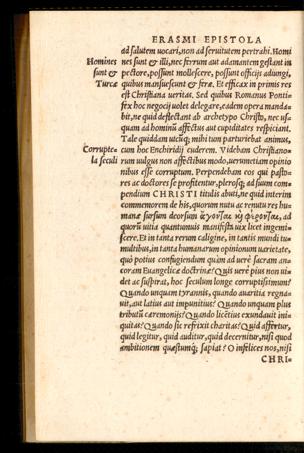 ERASMI EPISTOLA
ad salutem uocari, non ad seruitutem pertrahi. Homi
Homines nes sunt & illi, nec ferrum aut adamantem gestant in
sunt & pectore, possunt mollescere, possunt officijs adiungi,
Turcæ quibus mansuescunt & feræ. Et efficax in primis res
est Christiana ueritas. Sed quibus Romanus Ponti-
fex hoc negocij uolet delegare, eadem opera manda-
bit, ne quid deflectant ab archetypo Christo, nec us-
quam ad hominū affectus aut cupiditates respiciant.
Tale quiddam utcūq; mihi tum parturiebat animus,
Corrupte- cum hoc Enchiridij cuderem. Videbam Christiano-
la seculi rum uulgus non affectibus modo, uerumetiam opinio
nibus esse corruptum. Perpendebam eos qui pasto-
res ac doctores se profitentur, plerosq; ad suum com-
pendium CHRISTI titulis abuti, ne quid interim
commemorem de his, quorum nutu ac renutu res hu-
manæ sursum deorsum ἄγονται καὶ φέρονται, ad
quorū uitia quantumuis manifesta uix licet ingemi-
scere. Et in tanta rerum caligine, in tantis mundi tu-
multibus, in tanta humanarum opinionum uarietate,
quò potius confugiendum quàm ad uerè sacram an-
coram Euangelicæ doctrinæ? Quis uerè pius non ui-
det ac suspirat, hoc seculum longe corruptissimum?
Quando unquam tyrannis, quando auaritia regna-
uit, aut latius aut impunitius? Quando unquam plus
tributū cæremonijs? Quando licētius exundauit ini-
quitas? Quando sic refrixit charitas? Quid affertur,
quid legitur, quid auditur, quid decernitur, nisi quod
ambitionem quæstumq; sapiat? O infelices nos, nisi
CHRI-